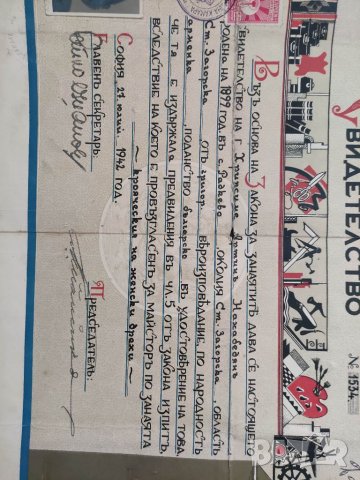 Свидетелство
№ 1534
Въз основа на Закона за занаятитѣ дава се настоящето
свидетелство на г. Хтипсиме Артинъ Нахабедянъ
родена на 1899 год. въ с. Раднево околия Ст. Загорска область
Ст. Загорска отъ григор. вѣроизповѣдание, по народность
арменка, поданство българско въ удостовѣрение на това
че тя е издържала предвидения въ чл. 5 отъ закона изпитъ,
вследствие на което е провъзгласенъ за майсторъ по занаята
~ кроячески на женски дрехи ~
София, 21 юлий 1942 год.
Главенъ секретарь:
Председатель:
BAZAR